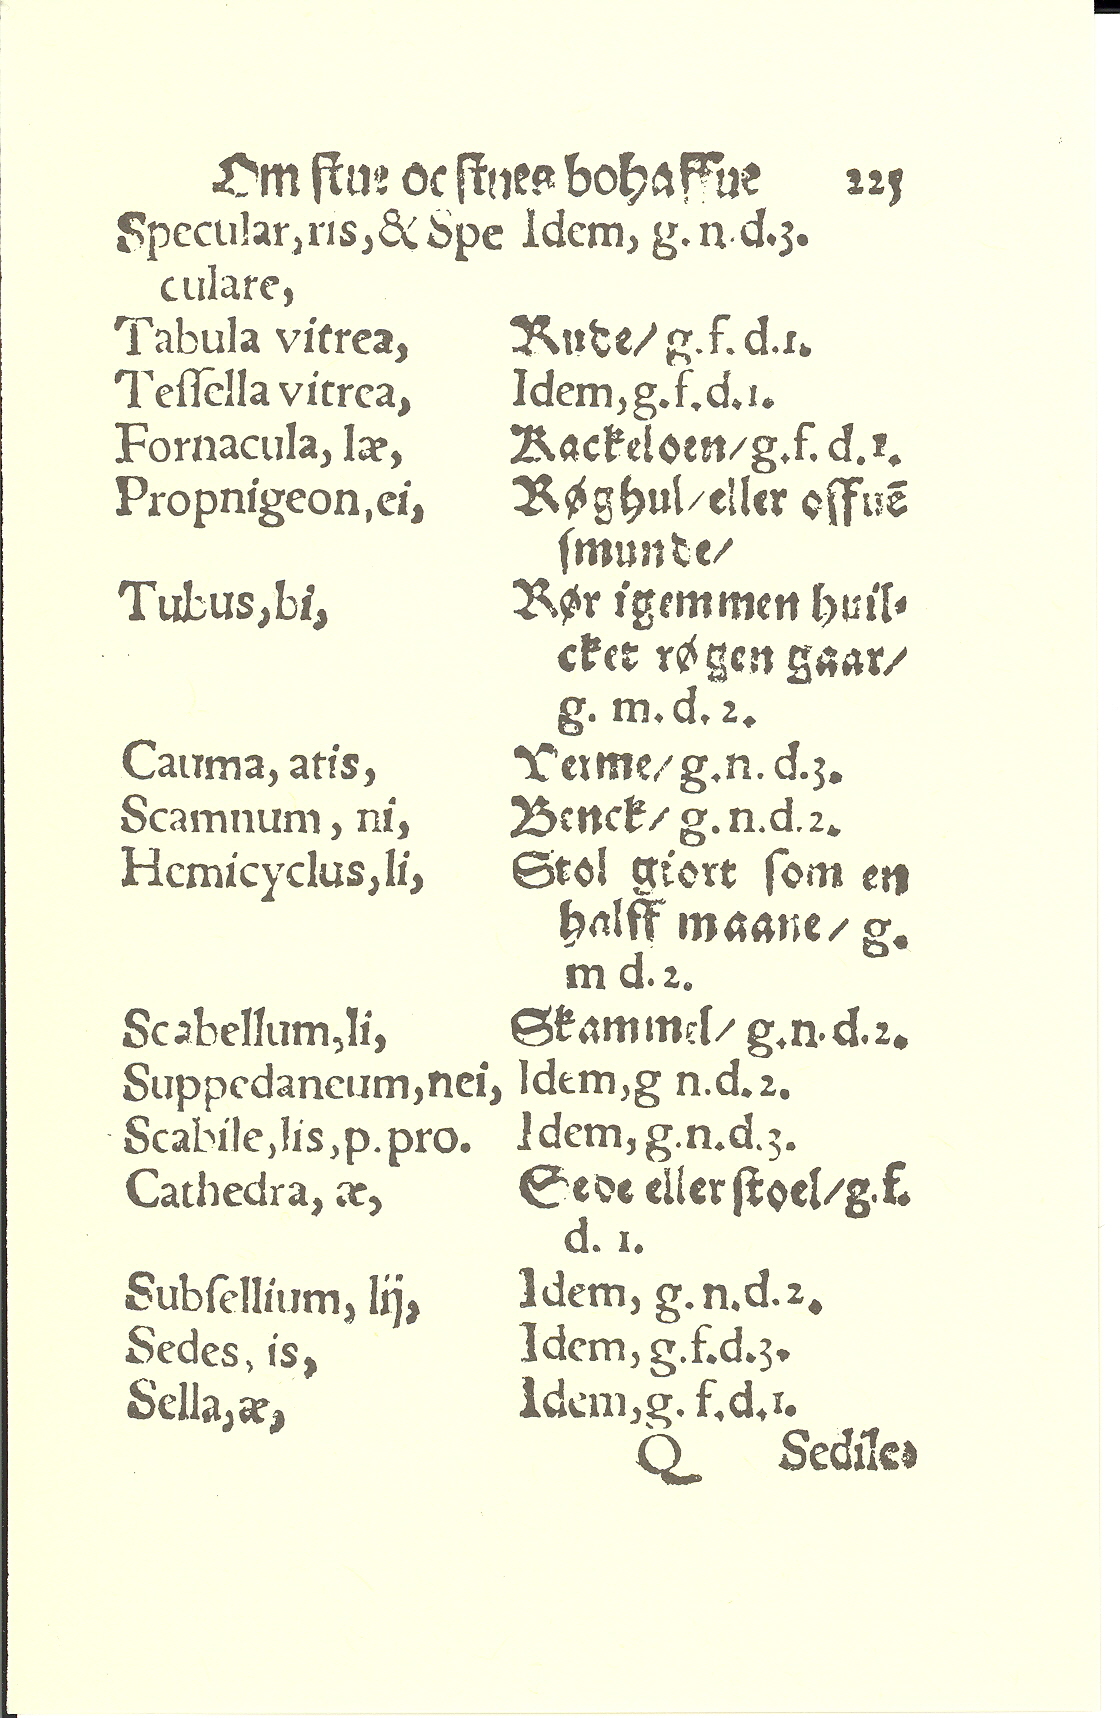 Om stue oc stues bohaffue 225
Specular,ris,& Spe Idem, g.n.d.3.
culare,
Tabula vitrea, Rude/ g.f.d.1.
Teſſella vitrea, Idem,g.f.d.1.
Fornacula, læ, Kackeloen/g.f.d.1.
Propnigeon,ei, Røghul/eller offuē
ſmunde/
Tubus,bi, Rør igemmen huil-
cket røgen gaar/
g. m. d. 2.
Cauma, atis, Verme/ g.n. d.3.
Scamnum, ni, Benck/ g.n.d.2.
Hemicyclus,li, Stol giort ſom en
halff maane/ g.
m d.2.
Scabellum,li, Skammel/ g.n.d.2.
Suppedaneum,nei, Idem,g n.d.2.
Scabile,lis,p.pro. Idem, g.n.d.3.
Cathedra, æ, Sede eller ſtoel/g.f.
d. 1.
Subſellium, lij, Idem, g.n.d.2.
Sedes, is, Idem, g.f.d.3.
Sella,æ, Idem,g. f.d.1.
Q Sedile,